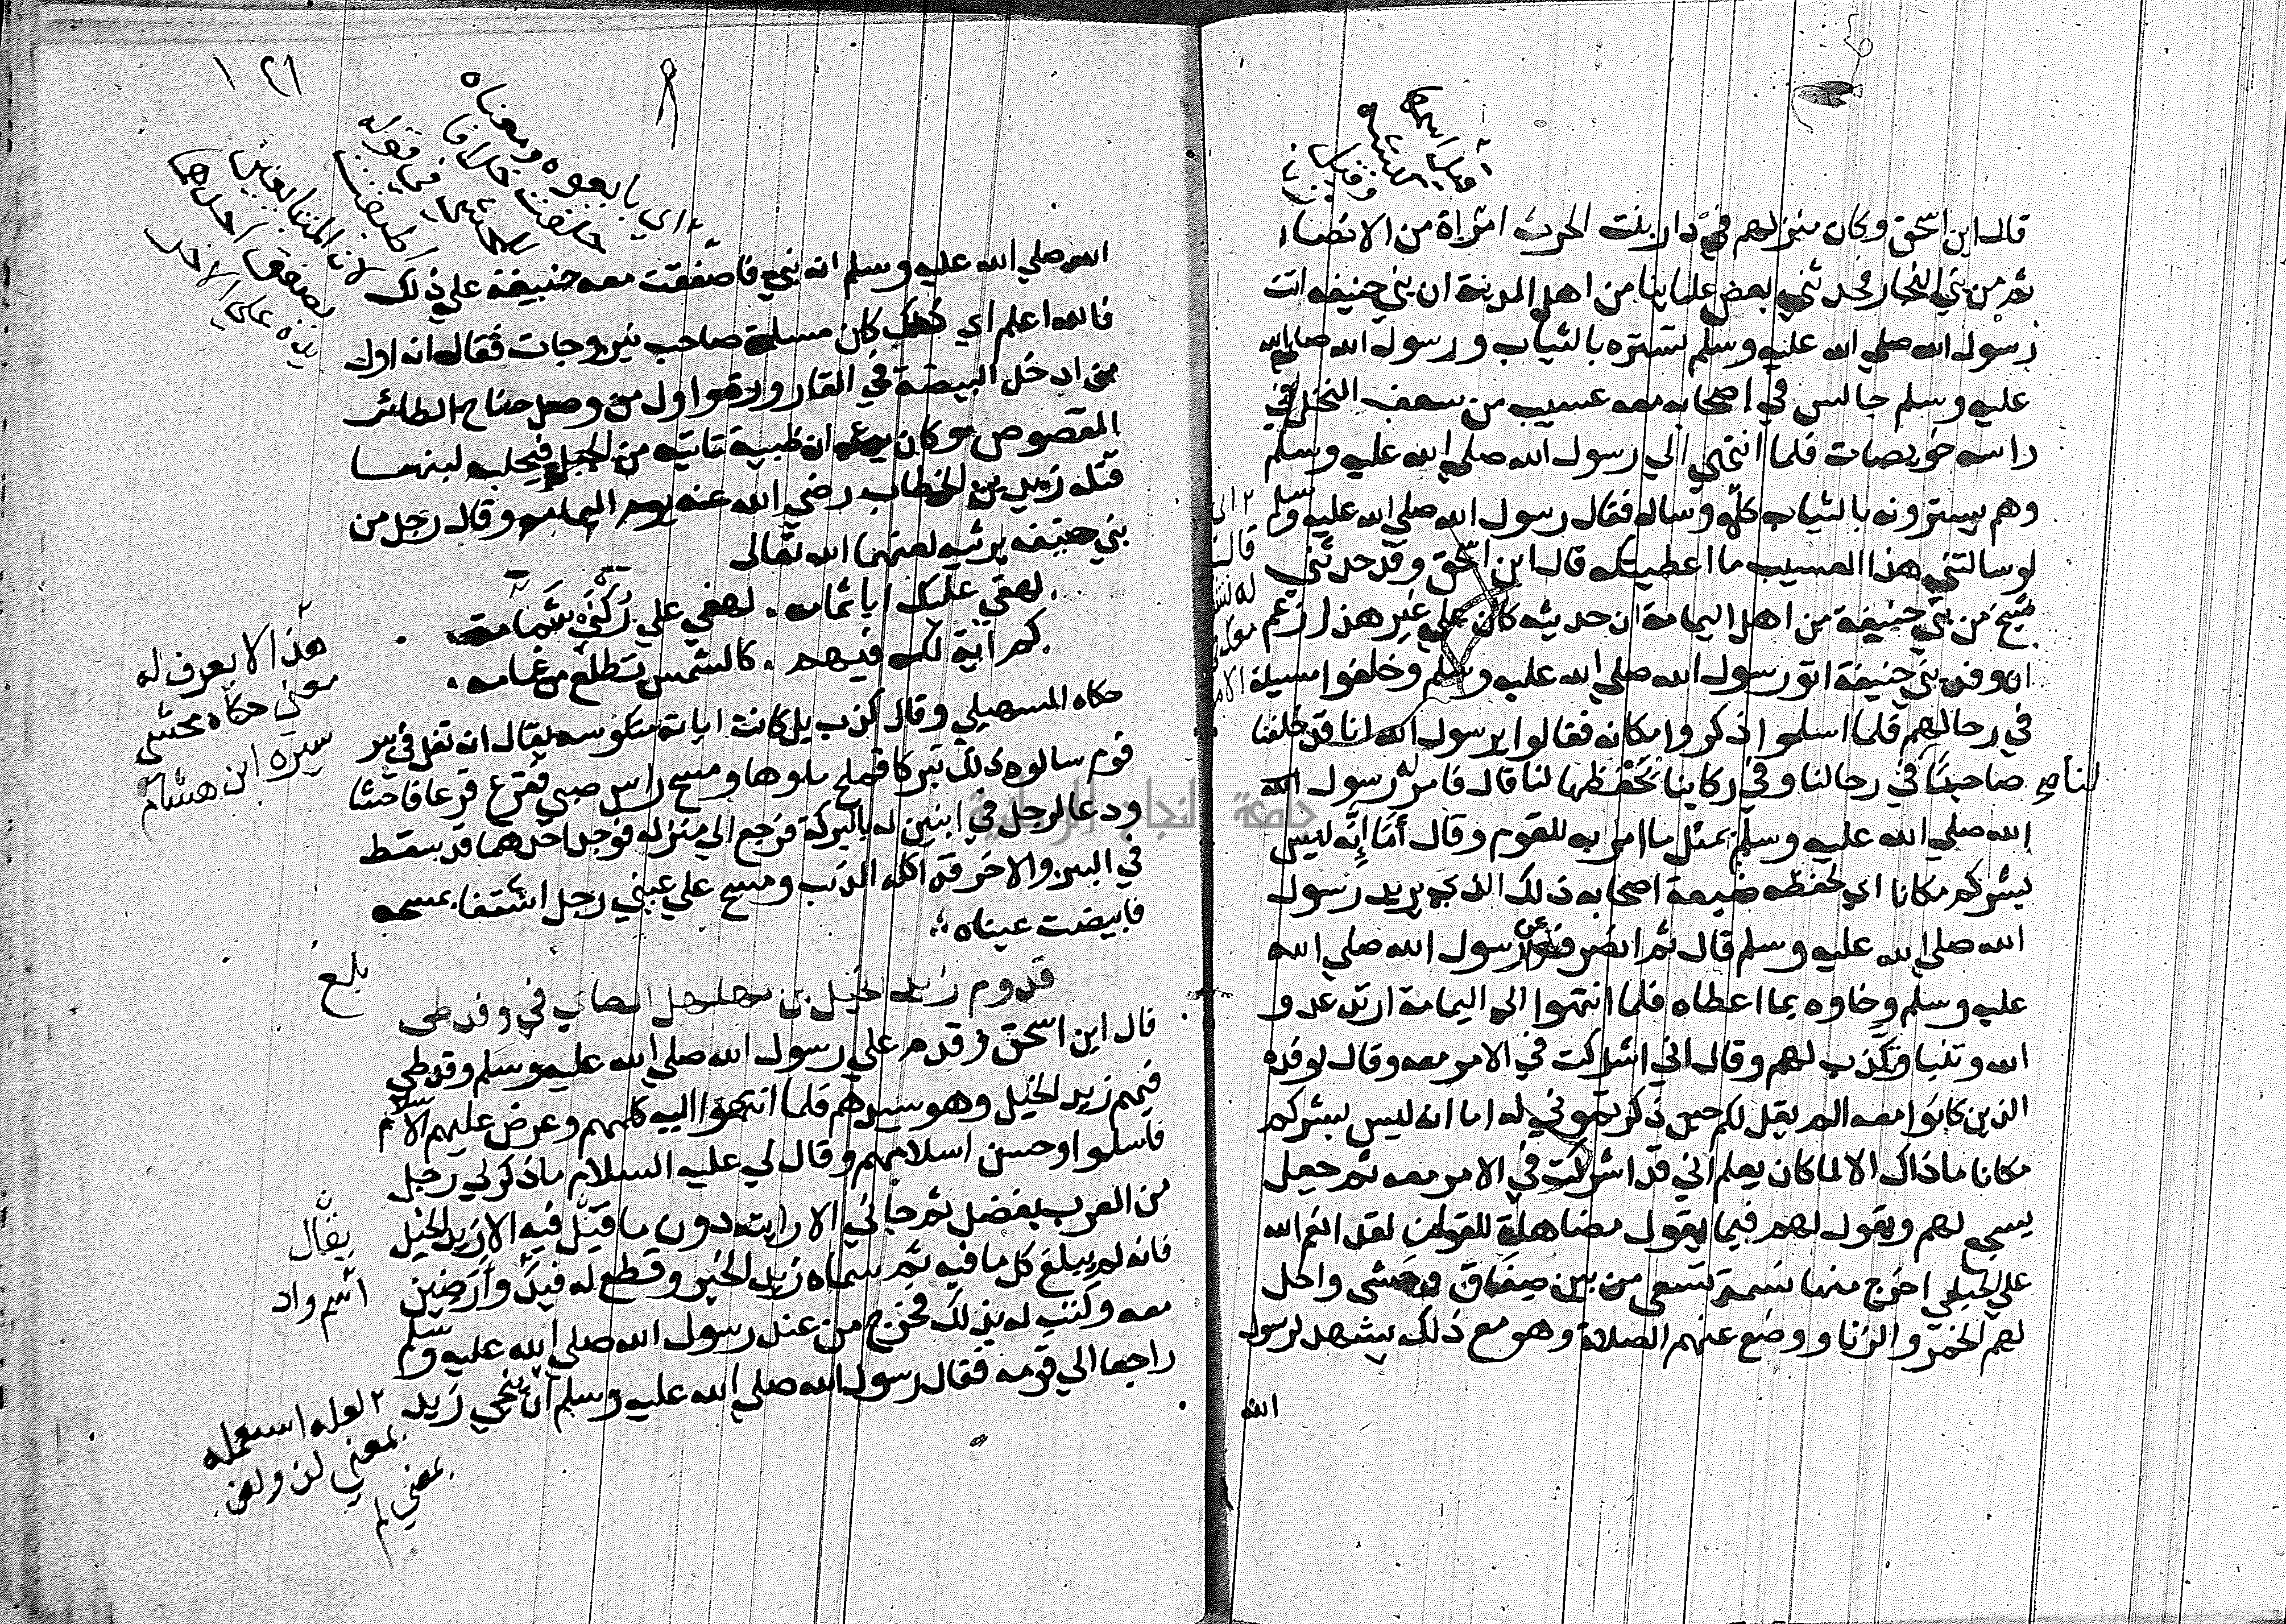 قال ابن اسحق وكان منزلهم في دار بنت الحرث امراة من الانصار
ثم من بني النجار فحدثني بعض علماينا من اهل المدينة ان بني حنيفه اتت
رسول الله صلي الله عليه وسلم تستره بالثياب ورسول الله صلي الله
عليه وسلم جالس في اصحابه معه عسيب من سعف النخل في
راسه خويصات فلما انتهي الي رسول الله صلي الله عليه وسلم
وهم يسترونه بالثياب كلمه وساله فقال رسول الله صلي الله عليه وسلم
لو سالتني هذا العسيب ما اعطيتكه قال ابن اسحق وقد حدثني
شيخ من بني حنيفة من اهل اليمامة ان حديثه كان علي غير هذا زعم
ان وفد بني حنيفة اتو رسول الله صلي الله عليه وسلم وخلفوا مسيلمة
في رحالهم فلما اسلموا ذكروا مكانه فقالوا يرسول الله انا قد خلفنا
صاحبنا في رحالنا وفي ركابنا يحفظها لنا قال فامر له رسول الله
الله صلي الله عليه وسلم بمثل ما امر به للقوم وقال أما إنه ليس
بشركم مكانا اي لحفظه ضيعة اصحابه ذلك الذي يريد رسول
الله صلي الله عليه وسلم قال ثم انصرفوا عن رسول الله صلي الله
عليه وسلم وجاوه بما اعطاه فلما انتهوا الي اليمامة ارتد عدو
الله وتنبا وتكذب لهم وقال اني اشركت في الامر معه وقال لوفده
الذين كانوا معه الم يقل لكم حين ذكرتموني له اما انه ليس بشركم
مكانا ما ذاك الا لما كان يعلم اني قد اشركت في الامر معه ثم جعل
يسجع لهم ويقول لهم فيما يقول مضاهاة للقران لقد انعم الله
علي الحبلي اخرج منها نسمة تسعي من بين صفاق وحشي واحل
لهم الخمر والزنا ووضع عنهم الصلاة وهو مع ذلك يشهد لرسول
الله
١٢١
اي بايعوه ومعناه
لان المتبايعين
يصفق احدهما
يده علي الاخر
الله صلي الله عليه وسلم انه نبي فاصفقت معه حنيفة علي ذلك
فالله اعلم اي ذلك كان مسلمة صاحب نيروجات فقال انه اول
من ادخل البيضة في القارورة وهو اول من وصل جناح الطائر
المقصوص وكان يدعي ان ظبية تاتيه من الجبل فيحلب لبنها
قتله زيد بن الخطاب رضي الله عنه يوم اليمامه وقال رجل من
بني حنيفه يرثيه لعنهما الله تعالى
لهفي عليك ابا ثمامه . لهفي علي ركني شمامة
كم اية لك فيهم . كالشمس تطلع من غمامه
حكاه السهيلي وقال كذب بل كانت اياته منكوسه يقال انه تفل في بير
قوم سالوه ذلك تبركا فملح ماوها ومسح راس صبي فقرع قرعا فاحشا
ودعا لرجل في ابنين له بالبركة فرجع الي منزله فوجد احدهما قد سقط
في البير والاخر قد اكله الذيب ومسح علي عيني رجل استشفا بمسحه
فابيضت عيناه
هذا لا يعرف له
معني حكاه محشي
سيره ابن هشام
بلغ
قدوم زيد الخيل بن مهلهل الطائي في وفد طي
قال ابن اسحق وقدم علي رسول الله صلي الله عليه وسلم وفد طي
فيهم زيد الخيل وهو سيدهم فلما انتهوا اليه كلمهم وعرض عليهم الاسلام
فاسلموا وحسن اسلامهم وقال لي عليه السلام ما ذكر لي رجل
من العرب بفضل ثم جاني الا رايته دون ما قيل فيه الا زيد الخيل
فانه لم يبلغ كل ما فيه ثم سماه زيد الخير وقطع له فيد وارضين
معه وكتب له بذلك فخرج من عند رسول الله صلي الله عليه وسلم
راجعا الي قومه فقال رسول الله صلي الله عليه وسلم ان ينجي زيد
اسم واد
لعله استعمله
بمعني لن
بمعني لم